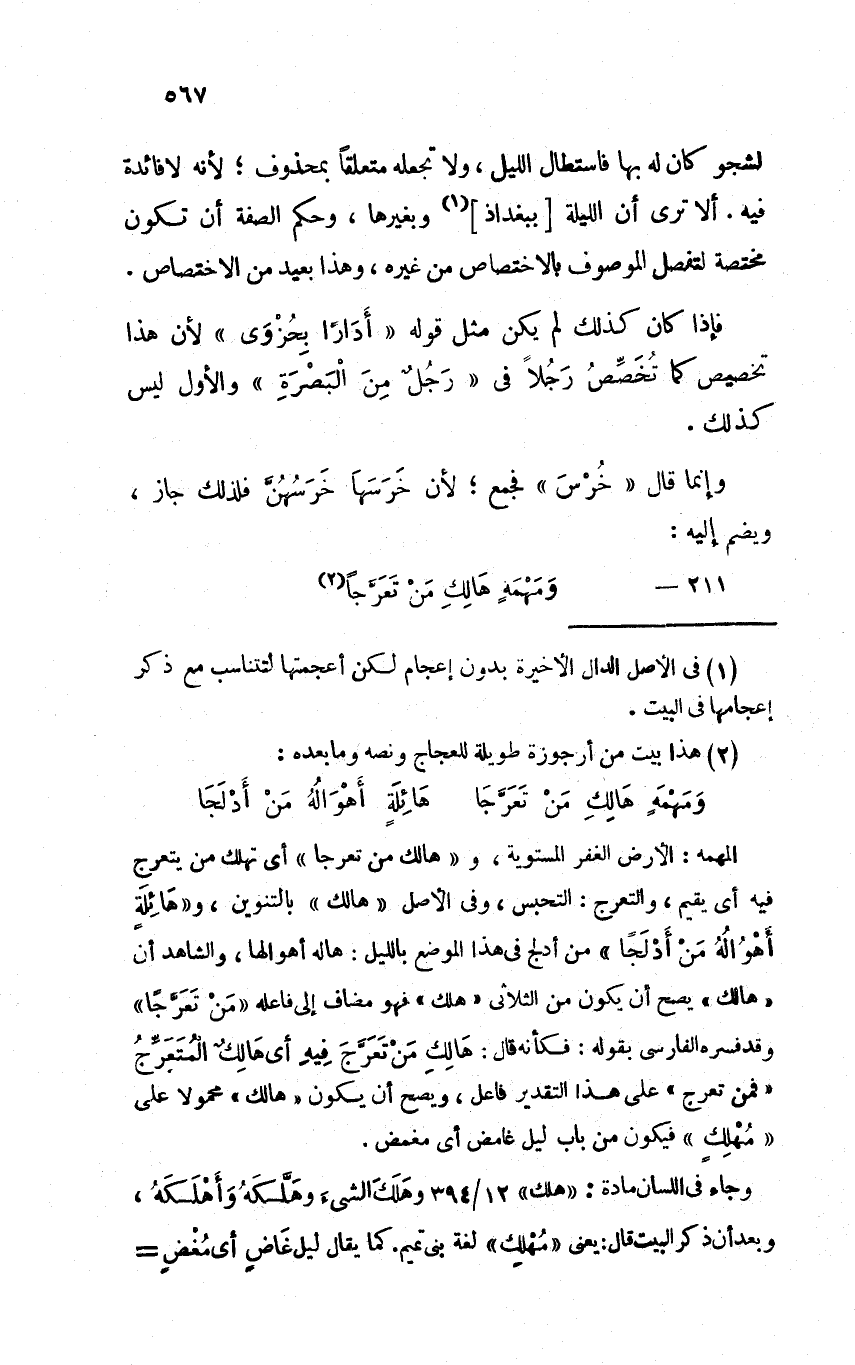 ٥٦٧
لشجو كان له بها فاستطال الليل ، ولا تجعله متعلقاً بمحذوف ؛ لأنه لا فائدة
فيه . ألا ترى أن الليلة [ ببغداذ ](١) وبغيرها ، وحكم الصفة أن تكون
مختصة لتفصل الموصوف بالاختصاص من غيره ، وهذا بعيد من الاختصاص .
فإذا كان كذلك لم يكن مثل قوله « أَدَارًا بِحُزْوَى » لأن هذا
تخصيص كما تُخَصِّصُ رَجُلاً فى « رَجُلٌ مِنَ الْبَصْرَةِ » والأول ليس
كذلك .
وإنما قال « خُرْسَ » فجمع ؛ لأن خَرَسَهَا خَرَسُهُنَّ فلذلك جاز ،
ويضم إليه :
٢١١ — وَمَهْمَهٍ هَالِكِ مَنْ تَعَرَّجاً(٢)
(١) فى الأصل الدال الأخيرة بدون إعجام لكن أعجمتها لتتناسب مع ذكر
إعجامها فى البيت .
(٢) هذا بيت من أرجوزة طويلة للعجاج ونصه ومابعده :
وَمَهْمَهٍ هَالِكِ مَنْ تَعَرَّجَا هَائِلَةٍ أَهْوَالُهُ مَنْ أَدْلَجَا
المهمه : الأرض الغفر المستوية ، و « هالك من تعرجا » أى تهلك من يتعرج
فيه أى يقيم ، والتعرج : التحبس ، وفى الأصل « هالك » بالتنوين ، و«هَائِلَةٍ
أَهْوُالُهُ مَنْ أَدْلَجًا » من أدلج فى هذا الموضع بالليل : هاله أهوالها ، والشاهد أن
« هالك » يصح أن يكون من الثلاثى « هلك » فهو مضاف إلى فاعله «مَنْ تَعَرَّجًا»
وقد فسره الفارسى بقوله : فكأنه قال : هَالِكِ مَنْ تَعَرَّجَ فِيهِ أى هَالِكٌ الْمُتَعَرِّجُ
« فمن تعرج » على هذا التقدير فاعل ، ويصح أن يكون « هالك » محمولا على
« مُهْلِكٍ » فيكون من باب ليل غامض أى مغمض .
وجاء فى اللسان مادة : «هلك» ٣٩٤/١٢ وهَلَكَ الشىء وهَلَّكَهُ وَأَهْلَكَهُ ،
وبعد أن ذكر البيت قال : يعنى «مُهْلِك» لغة بنى تميم. كما يقال ليل غَاضٍ أى مُغْضٍ =